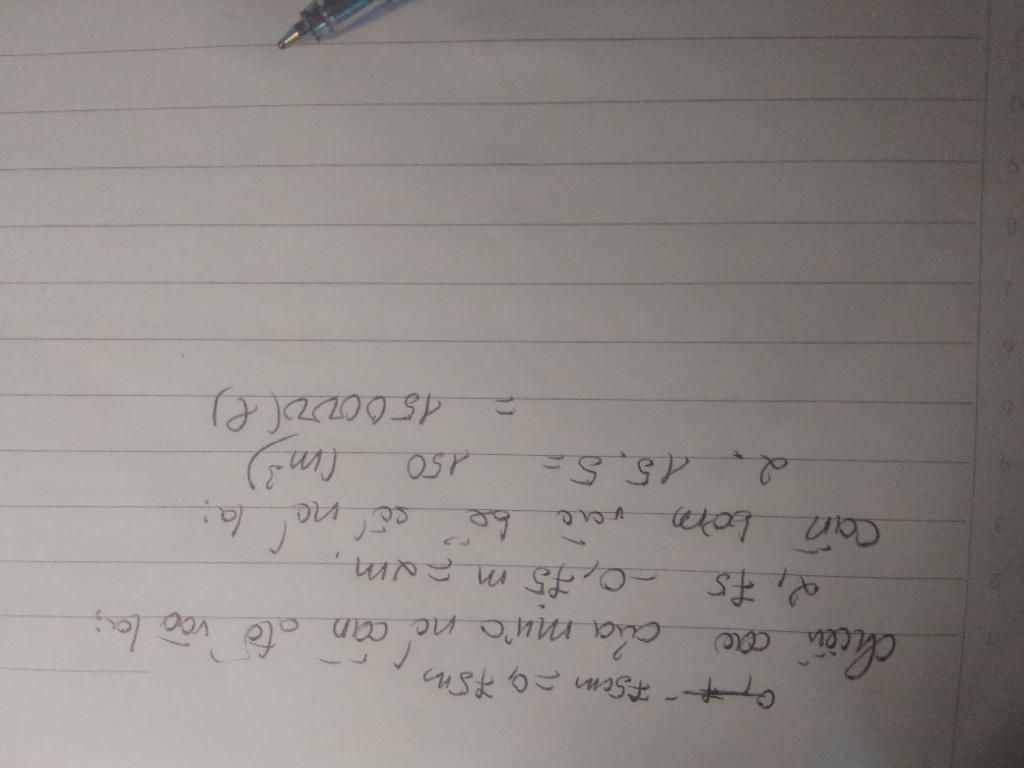 75cm = 0,75m
Chiều cao của mực nc cần đổ vào là:
2,75 - 0,75 m = 2m.
Cần bơm vào bể số nc là:
2. 15. 5 = 150 (m³)
= 150000 (l)
1
2
3
4
5
6
7
8
9
10